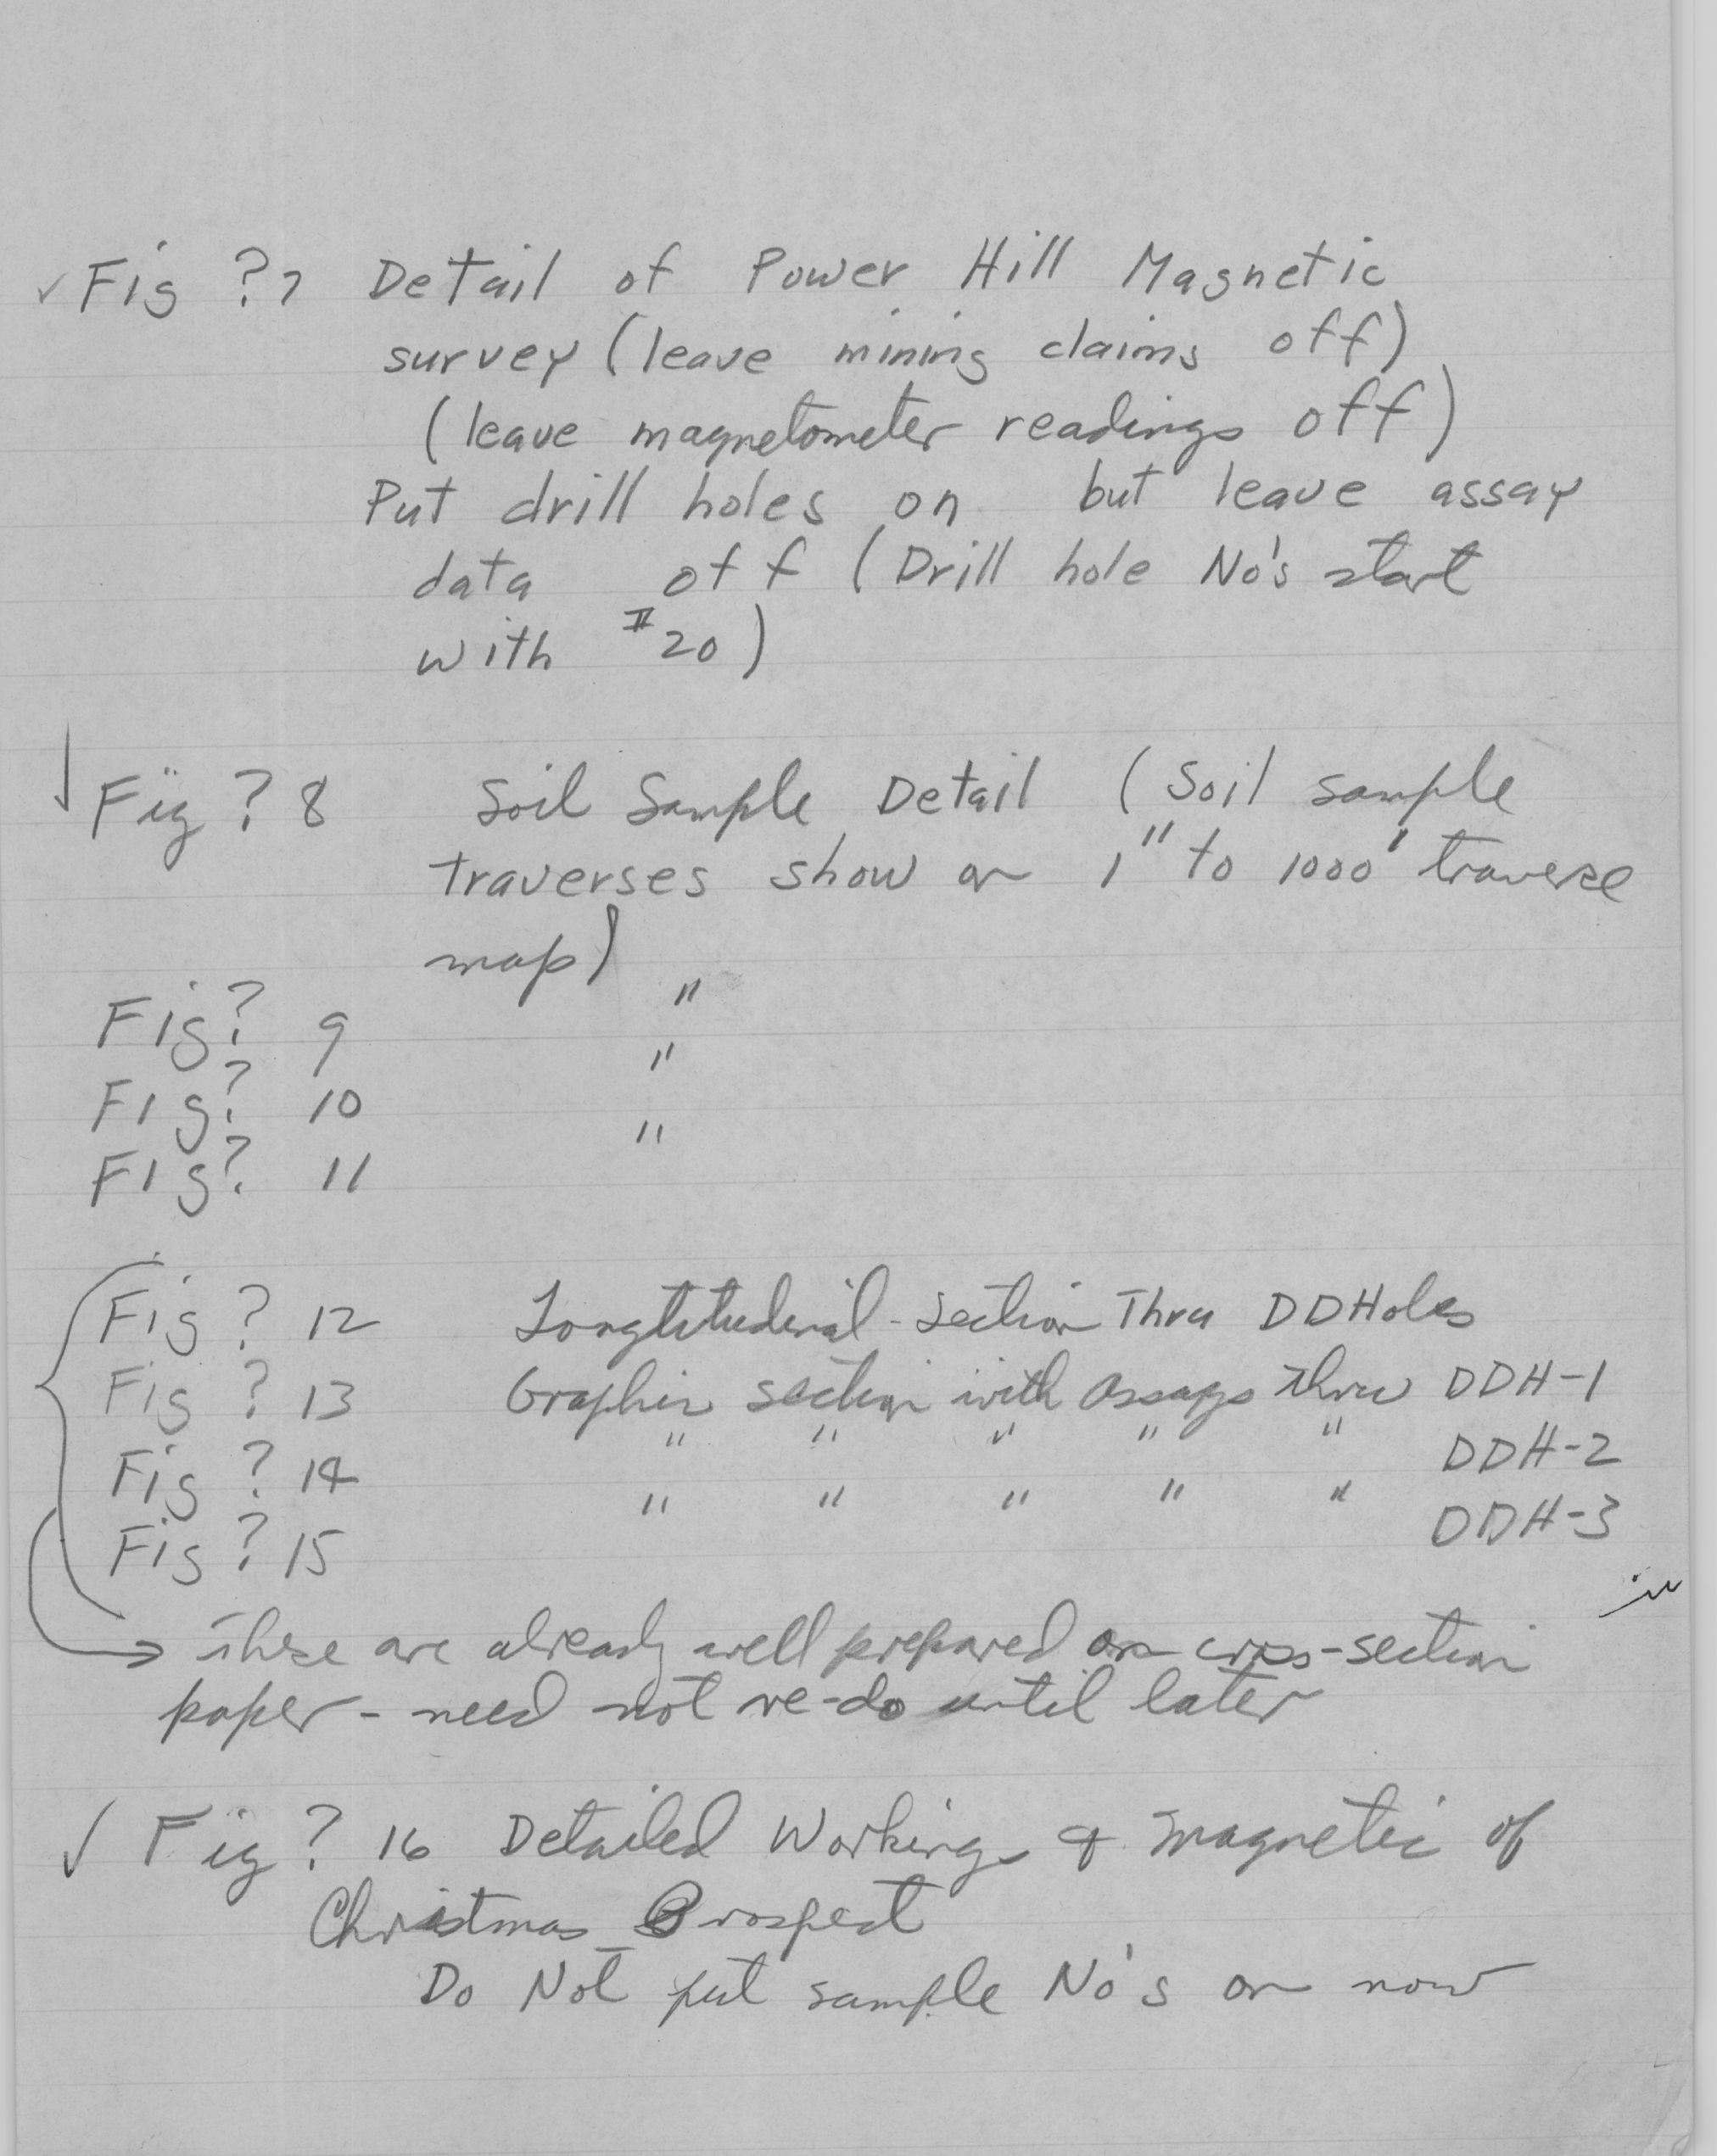 ✓ Fig ? 7 Detail of Power Hill Magnetic
survey (leave mining claims off)
(leave magnetometer readings off)
Put drill holes on but leave assay
data off (Drill hole No's start
with #20)
Fig ? 8 Soil Sample Detail (Soil sample
traverses show on 1" to 1000' traverse
map)
Fig? 9 "
Fig? 10 "
Fig? 11 "
Fig ? 12 Longtitudenal - section Thru DDHoles
Fig ? 13 Graphic section with assays thru DDH-1
Fig ? 14 " " " " " DDH-2
Fig ? 15 " " " " " DDH-3
→ These are already well prepared on cross-section
paper - need not re-do until later
✓ Fig ? 16 Detailed Workings & Magnetic of
Christmas Prospect
Do Not put sample No's on now